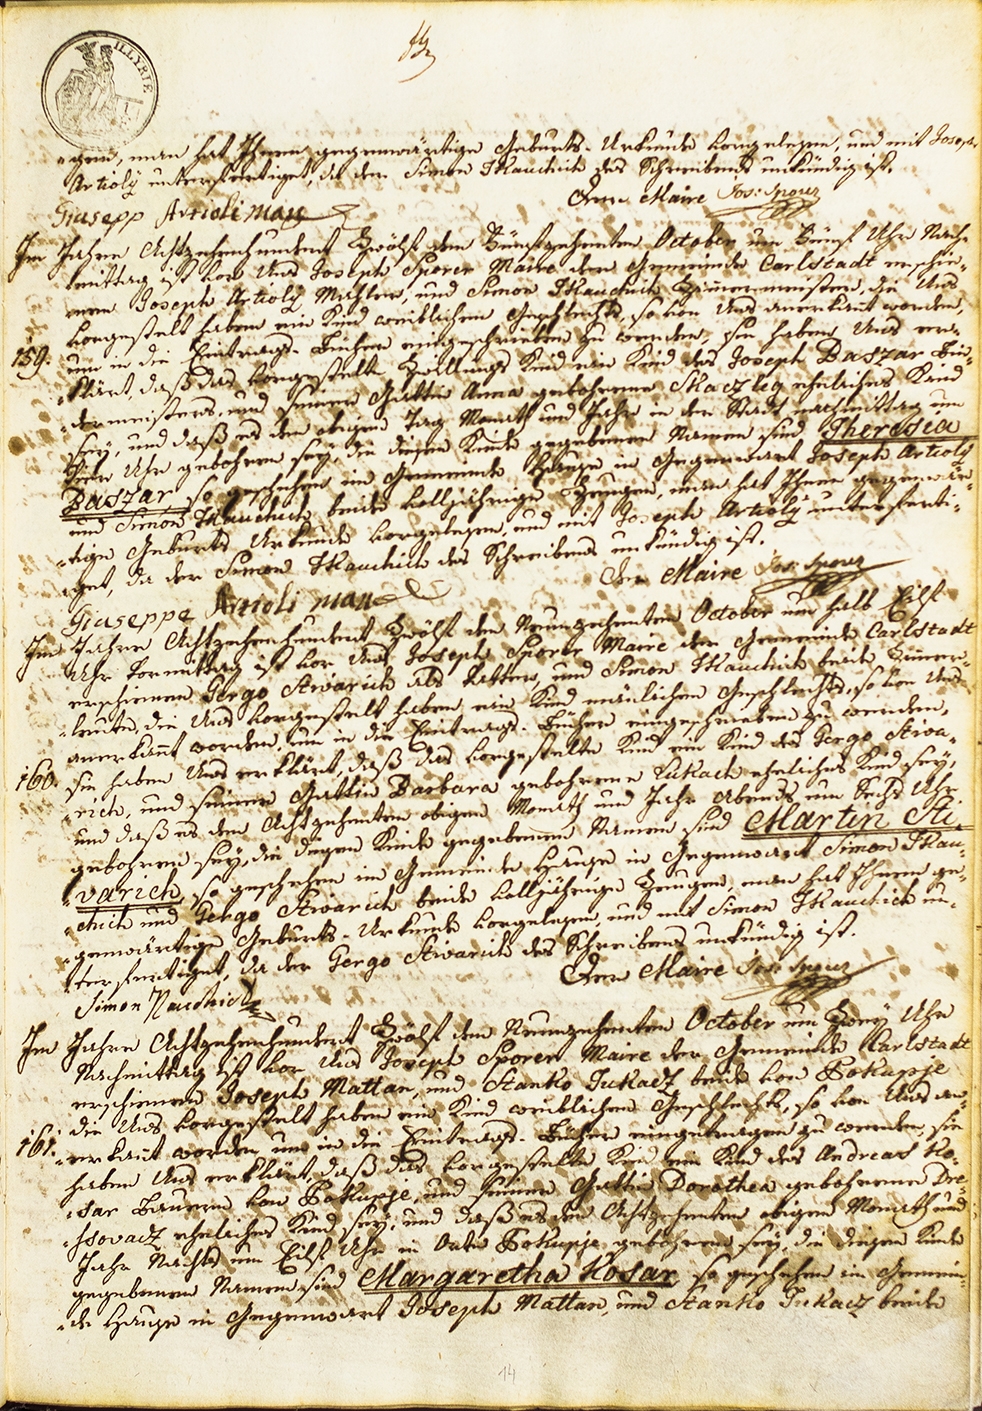 ILLYRIE
gen, man hat Ihnen gegenwärtige Geburts-Urkunde vorgelesen, und mit Joseph
Artioly unterfertiget, da der Simon Tkauchich des Schreibens unkündig ist.
Der Maire Jos: Sporer
Giusepp Artioli
Im Jahre Achtzehenhundert Zwölf den Fünfzehenten October um Fünf Uhr Nach-
mittag ist vor Uns Joseph Sporer Maire der Gemeinde Carlstadt erschie-
nen Joseph Artioly Mahler, und Simon Tkauchich Zimmermeister, die Uns
vorgestelt haben ein Kind weiblichen Geschlechts, so von Uns anerkant worden,
159. um in die Eintrags-Bücher eingeschrieben zu werden, sie haben Uns er-
klärt, daß das vorgestelte Zwillings Kind ein Kind des Joseph Baszar Bin-
dermeisters, und seiner Gattin Anna gebohrene Skaczleg eheliches Kind
sey, und daß es den obigen Tag Monath und Jahr in der Stadt nachmittag um
Uhr gebohren sey, die diesen Kinde gegebenen Namen sind Theresia
Baszar so geschehen im Gemeinde Hause in Gegenwart Joseph Artioly
und Simon Tkauchich beide volljährige Zeugen, man hat Ihnen gegenwär-
tige Geburts Urkunde vorgelesen, und mit Joseph Artioly unterferti-
get, da der Simon Tkauchich des Schreibens unkündig ist.
Der Maire Jos: Sporer
Giuseppe Artioli
Im Jahre Achtzehenhundert Zwölf den Neunzehenten October um halb Eilf
Uhr Vormittag ist vor Uns Joseph Sporer Maire der Gemeinde Carlstadt
erschienen Gergo Stivarich als Vatter, und Simon Tkauchich beide Zimmer-
leute, die Uns vorgestelt haben ein Kind mänlichen Geschlechts, so von Uns
anerkant worden, um in die Eintrags-Bücher eingeschrieben zu werden,
160. sie haben Uns erklärt, daß das vorgestelte Kind ein Kind des Gergo Stiva-
rich, und seiner Gattin Barbara gebohrene Lukach eheliches Kind sey,
und daß es den Achtzehenten obigen Monath und Jahr Abends um Sechs Uhr
gebohren sey, die diesen Kinde gegebenen Namen sind Martin Sti-
varich so geschehen im Gemeinde Hause in Gegenwart Simon Tkau-
chich und Gergo Stivarich beide volljährige Zeugen, man hat Ihnen ge-
genwärtige Geburts-Urkunde vorgelesen, und mit Simon Tkauchich un-
terfertiget, da der Gergo Stivarich des Schreibens unkündig ist.
Der Maire Jos: Sporer
Simon
Im Jahre Achtzehenhundert Zwölf den Neunzehenten October um Zwey Uhr
Nachmittag ist vor Uns Joseph Sporer Maire der Gemeinde Karlstadt
erschienen Joseph Mattan, und Stanko Jukacz beide von Pokupje
die Uns vorgestelt haben ein Kind weiblichen Geschlechts, so von Uns an-
161. erkant worden, um in die Eintrags-Bücher eingetragen zu werden, sie
haben Uns erklärt, daß das vorgestelte Kind ein Kind des Andreas Ko-
sar Bauern von Pokupje, und seiner Gattin Dorothea gebohrene Dre-
ssovacz eheliches Kind sey, und daß es den Achtzehenten obigen Monath und
Jahr Nachts um Eilf Uhr in Orte Pokupje gebohren sey, die diesen Kinde
gegebenen Namen sind Margaretha Kosar so geschehen im Gemein-
de Hause in Gegenwart Joseph Mattan, und Stanko Jukacz beide
14